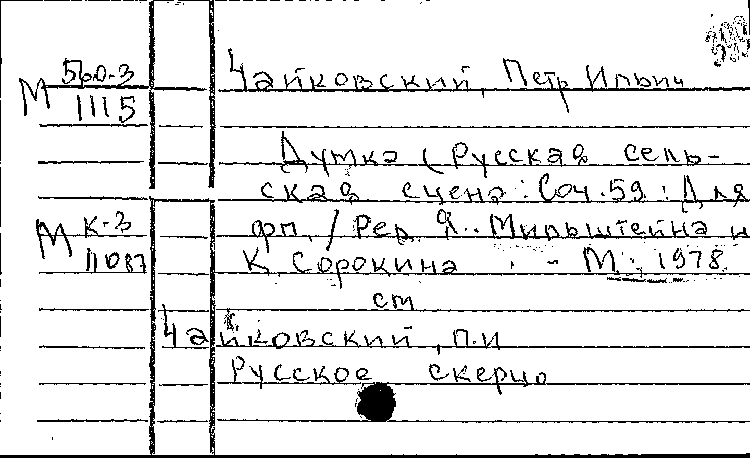 Чайковский, Петр Ильич
М 5р.0-3
1115
Думка (Русская сель-
ская сцена: Соч. 59: Для
М К-3
11087
фп. / Ред. Я. Мильштейна и
К. Сорокина - М., 1978.
см
Чайковский, П.И
Русское скерцо